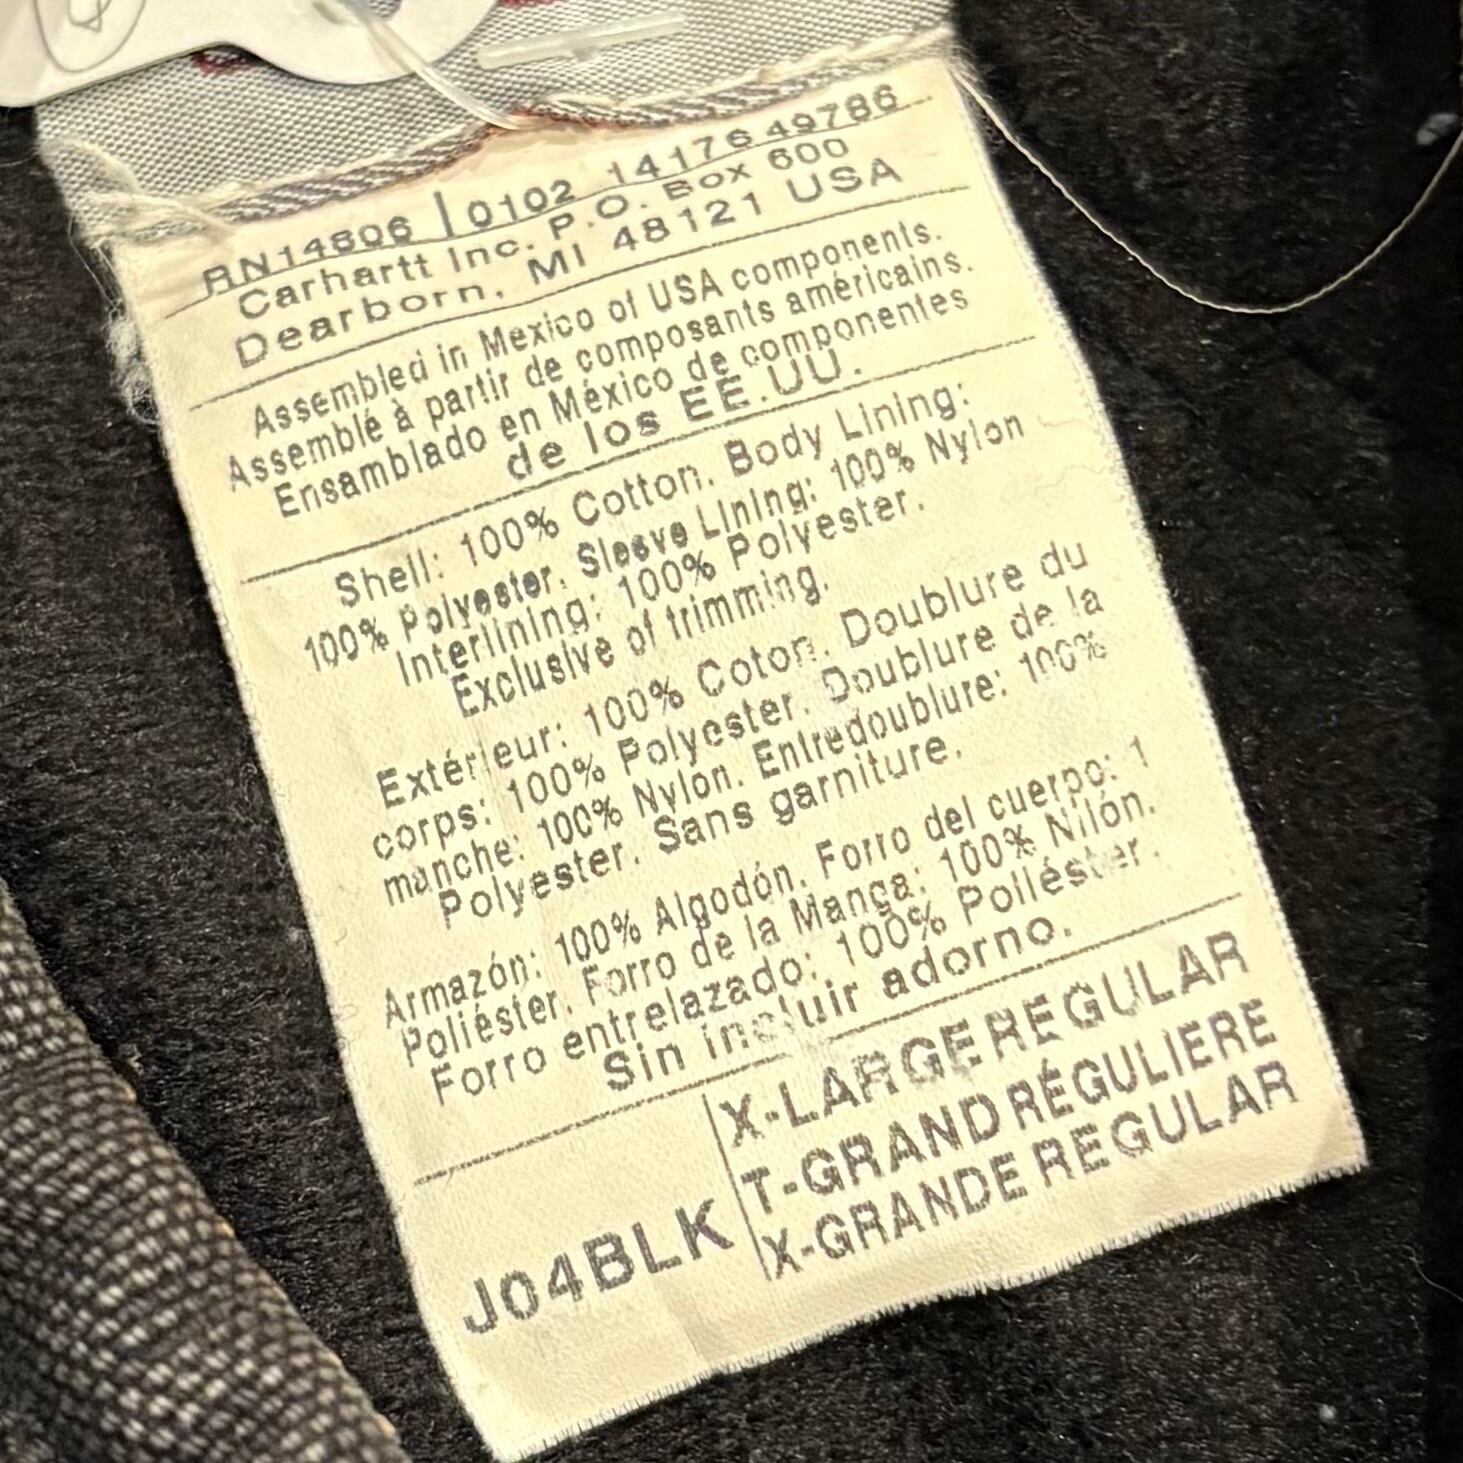 RN14806 | 0102 14176 49786
Carhartt Inc. P.O. Box 600
Dearborn, MI 48121 USA
Assembled in Mexico of USA components.
Assemblé à partir de composants américains.
Ensamblado en México de componentes
de los EE.UU.
Shell: 100% Cotton. Body Lining:
100% Polyester. Sleeve Lining: 100% Nylon
Interlining: 100% Polyester.
Exclusive of trimming.
Extérieur: 100% Coton. Doublure du
corps: 100% Polyester. Doublure de la
manche: 100% Nylon. Entredoublure: 100%
Polyester. Sans garniture.
Armazón: 100% Algodón. Forro del cuerpo: 1
Poliéster. Forro de la Manga: 100% Nilón.
Forro entrelazado: 100% Poliéster.
Sin incluir adorno.
J04BLK
X-LARGE REGULAR
T-GRAND RÉGULIERE
X-GRANDE REGULAR